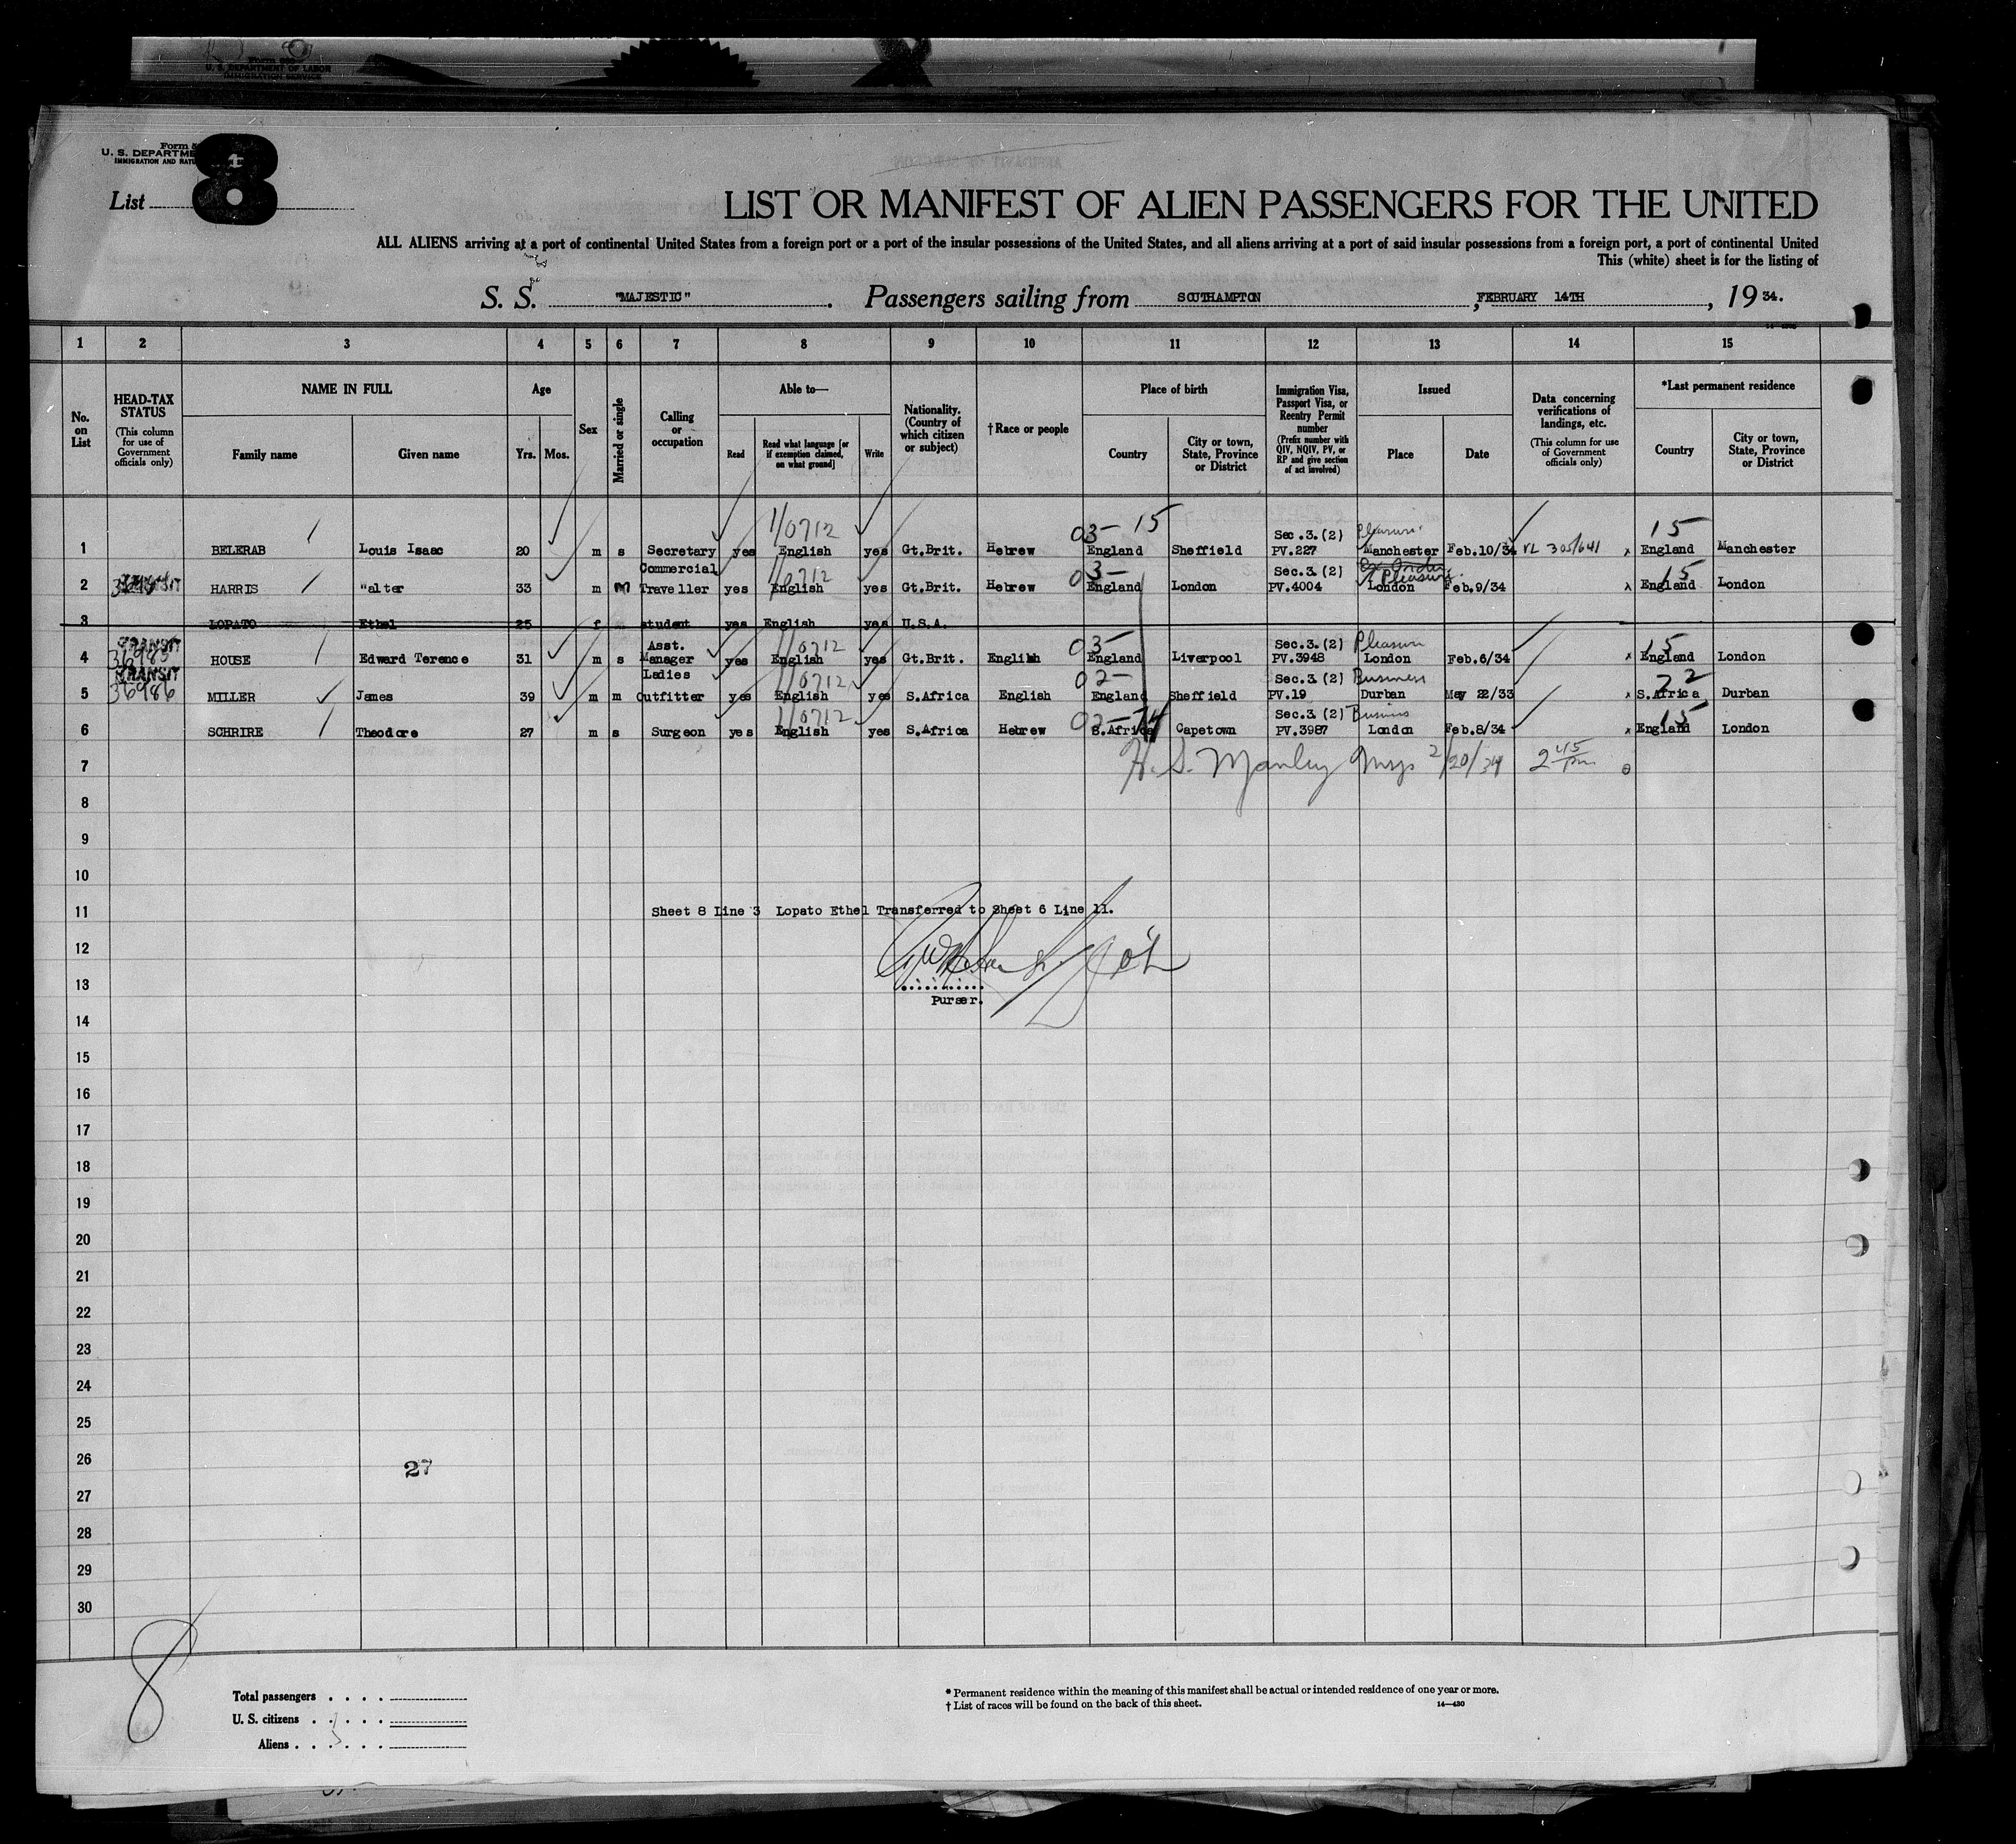 Form 500
U. S. DEPARTMENT OF LABOR
IMMIGRATION SERVICE
Form 5
U. S. DEPARTME
IMMIGRATION AND NATU
List 8
LIST OR MANIFEST OF ALIEN PASSENGERS FOR THE UNITED
ALL ALIENS arriving at a port of continental United States from a foreign port or a port of the insular possessions of the United States, and all aliens arriving at a port of said insular possessions from a foreign port, a port of continental United
This (white) sheet is for the listing of
S. S. "MAJESTIC". Passengers sailing from SOUTHAMPTON, FEBRUARY 14TH, 19 34.
1 2 3 4 5 6 7 8 9 10 11 12 13 14 15
No. on List
HEAD-TAX STATUS (This column for use of Government officials only)
NAME IN FULL
Family name
Given name
Age
Yrs. Mos.
Sex
Married or single
Calling or occupation
Able to—
Read
Read what language [or if exemption claimed, on what ground]
Write
Nationality. (Country of which citizen or subject)
† Race or people
Place of birth
Country
City or town, State, Province or District
Immigration Visa, Passport Visa, or Reentry Permit number (Prefix number with QIV, NQIV, PV, or RP and give section of act involved)
Issued
Place
Date
Data concerning verifications of landings, etc. (This column for use of Government officials only)
*Last permanent residence
Country
City or town, State, Province or District
1/0712 03- 15 Sec.3.(2) Pleasure 15
1 BELERAB Louis Isaac 20 m s Secretary yes English yes Gt.Brit. Hebrew England Sheffield PV.227 Manchester Feb.10/34 VL 305/641 x England Manchester
Commercial 1/0712 03- Sec.3.(2) Pleasure 15
2 HARRIS "alter 33 m m Traveller yes English yes Gt.Brit. Hebrew England London PV.4004 London Feb.9/34 x England London
3 LOPATO Ethel 25 f student yes English yes U.S.A.
TRANSIT Asst. 1/0712 03- Sec.3.(2) Pleasure 15
4 36985 HOUSE Edward Terence 31 m s Manager yes English yes Gt.Brit. English England Liverpool PV.3948 London Feb.6/34 x England London
TRANSIT Ladies 1/0712 02- Sec.3.(2) Business 22
5 36986 MILLER James 39 m m Outfitter yes English yes S.Africa English England Sheffield PV.19 Durban May 22/33 x S.Africa Durban
1/0712 02- 74 Sec.3.(2) Business 15
6 SCHRIRE Theodore 27 m s Surgeon yes English yes S.Africa Hebrew S.Africa Capetown PV.3987 London Feb.8/34 x England London
7 H. S. Manley 2/20/34 2 45 pm
8
9
10
11 Sheet 8 Line 3 Lopato Ethel Transferred to Sheet 6 Line 11.
12
13
Purser.
14
15
16
17
18
19
20
21
22
23
24
25
26
27
27
28
29
30
8
Total passengers
U. S. citizens
Aliens
* Permanent residence within the meaning of this manifest shall be actual or intended residence of one year or more.
† List of races will be found on the back of this sheet.
14—430